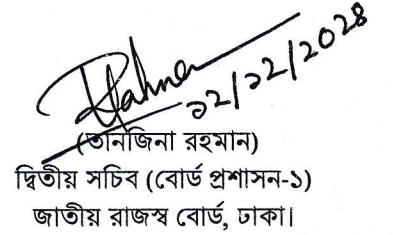 Rahman
১২/১২/২০২৪
(তানজিনা রহমান)
দ্বিতীয় সচিব (বোর্ড প্রশাসন-১)
জাতীয় রাজস্ব বোর্ড, ঢাকা।